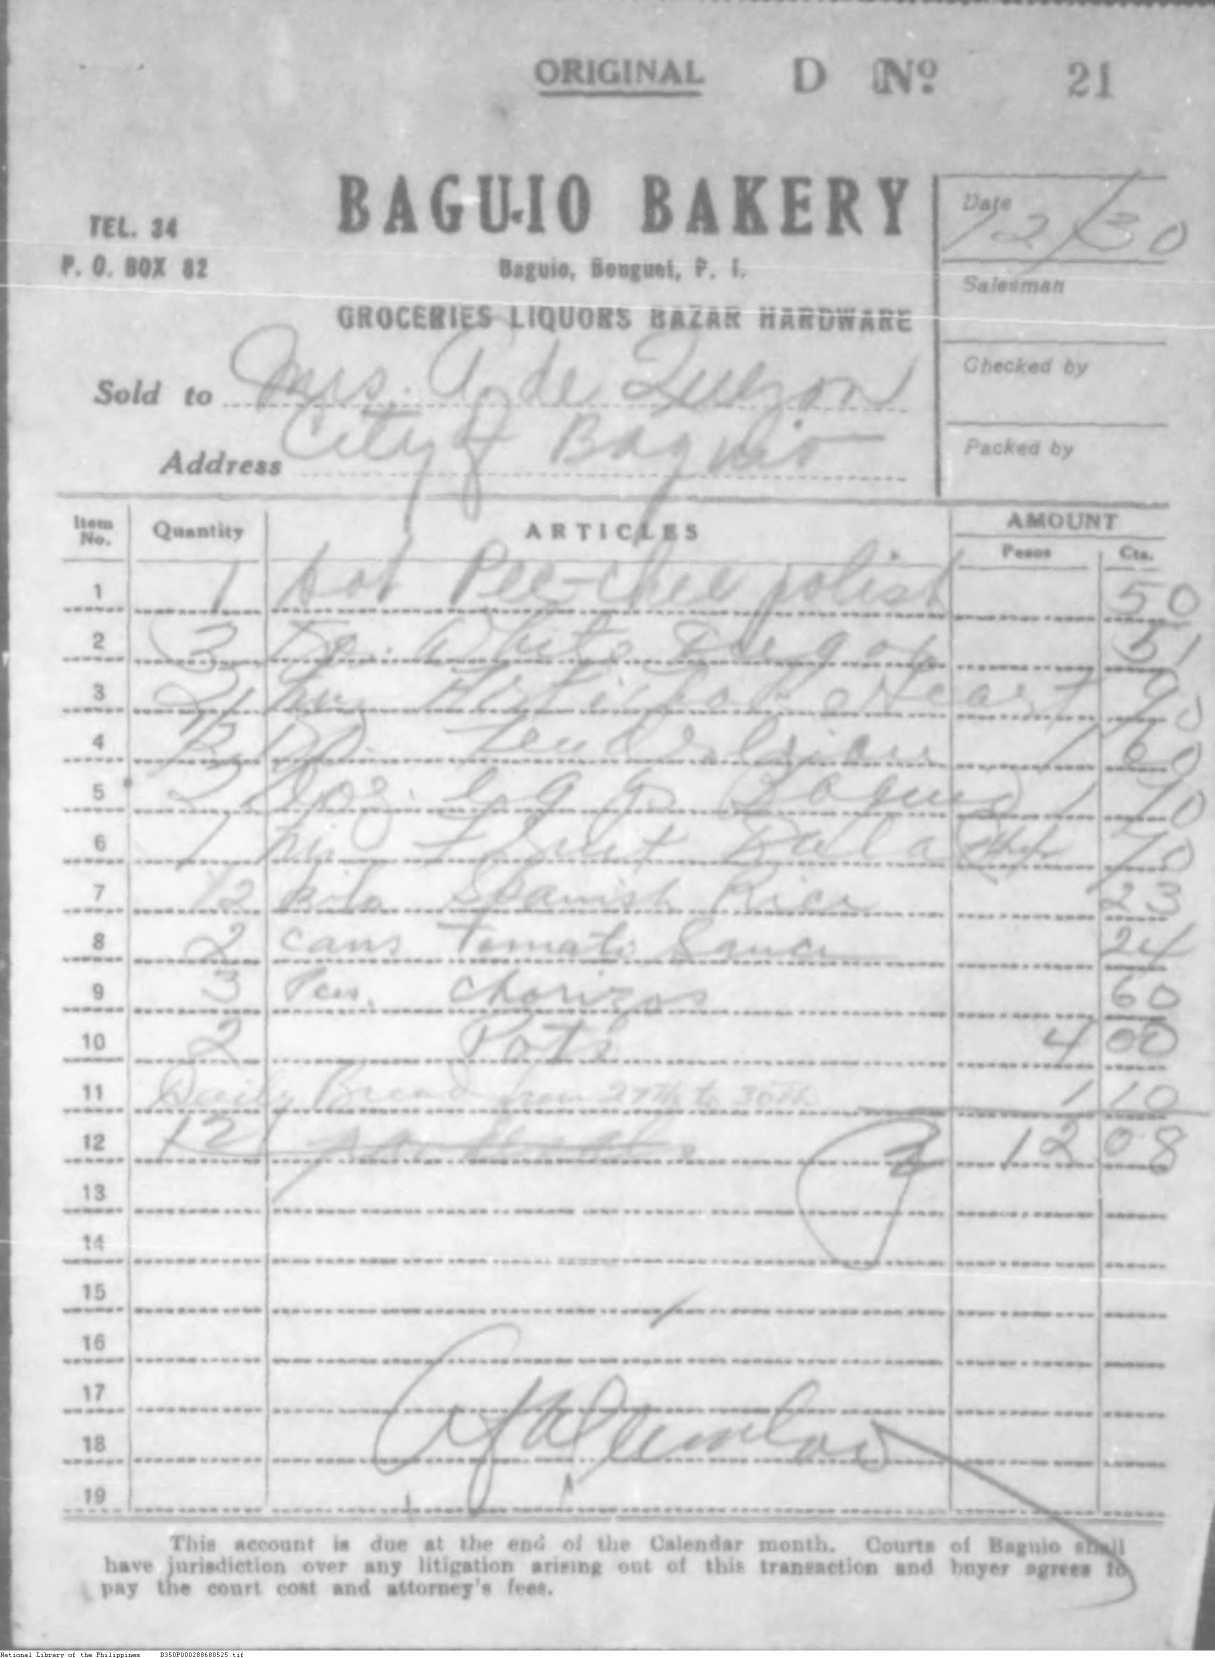 ORIGINAL D No. 21
BAGUIO BAKERY
TEL. 34
P. O. BOX 82
Baguio, Benguet, P. I.
GROCERIES LIQUORS BAZAR HARDWARE
Date 12/30
Salesman
Checked by
Packed by
Sold to Mrs. A. de Quezon
Address City of Baguio
Item No. Quantity ARTICLES AMOUNT
Pesos Cts.
1 1 bot Pee-chee polish 50
2 3 White 51
3 2 Heart 90
4 1/2 Tenderloin 1 60
5 2 Doz. Eggs Baguio 1 70
6 1 Fruit Salad 70
7 1/2 kilo Spanish Rice 23
8 2 cans Tomato Sauce 24
9 3 Pcs. Chorizos 60
10 2 Pots 4 00
11 Daily Bread from 27th to 30th 1 10
12 12 12 08
13
14
15
16
17
18
19
This account is due at the end of the Calendar month. Courts of Baguio shall
have jurisdiction over any litigation arising out of this transaction and buyer agrees to
pay the court cost and attorney's fees.
National Library of the Philippines D350P000288680525.tif